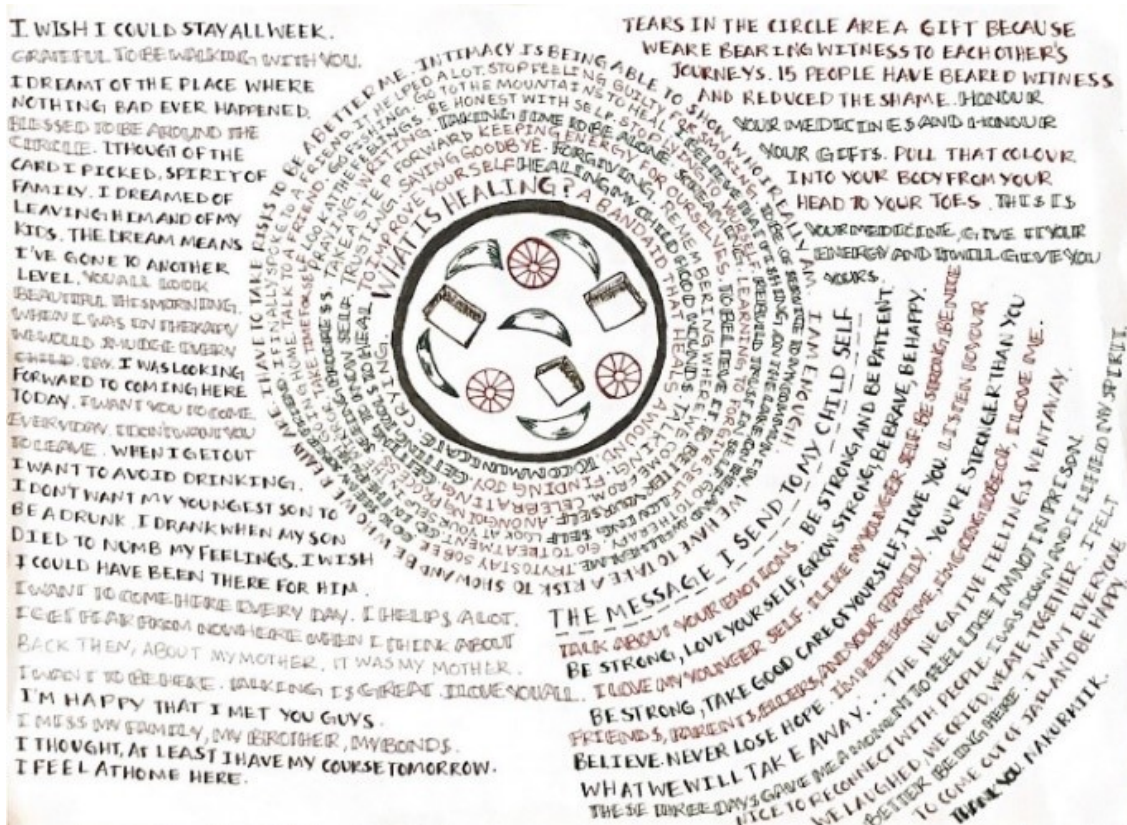 I WISH I COULD STAY ALL WEEK.
GRATEFUL TO BE WALKING WITH YOU.
I DREAMT OF THE PLACE WHERE
NOTHING BAD EVER HAPPENED.
BLESSED TO BE AROUND THE
CIRCLE. I THOUGT OF THE
CARD I PICKED, SPIRIT OF
FAMILY. I DREAMED OF
LEAVING HIM AND OF MY
KIDS. THE DREAM MEANS
I'VE GONE TO ANOTHER
LEVEL. YOU ALL LOOK
BEAUTIFUL THIS MORNING.
WHEN I WAS IN THERAPY
WE WOULD SMUDGE EVERY
I WAS LOOKING
FORWARD TO COMING HERE
TODAY. I WANT YOU TO COME
EVERYDAY. I DON'T WANT YOU
TO LEAVE. WHEN I GET OUT
I WANT TO AVOID DRINKING.
I DON'T WANT MY YOUNGEST SON TO
BE A DRUNK. I DRANK WHEN MY SON
DIED TO NUMB MY FEELINGS. I WISH
I COULD HAVE BEEN THERE FOR HIM.
I WANT TO COME HERE EVERY DAY. I HELPS A LOT.
I GET FEAR FROM NOWHERE WHEN I THINK ABOUT
BACK THEN, ABOUT MY MOTHER, IT WAS MY MOTHER.
I WANT TO BE HERE. TALKING IS GREAT. I LOVE YOU ALL.
I'M HAPPY THAT I MET YOU GUYS.
I MISS MY FAMILY, MY BROTHER, MY BONDS.
I THOUGHT, AT LEAST I HAVE MY COURSE TOMORROW.
I FEEL AT HOME HERE.
TEARS IN THE CIRCLE ARE A GIFT BECAUSE
WE ARE BEARING WITNESS TO EACH OTHER'S
JOURNEYS. 15 PEOPLE HAVE BEARED WITNESS
AND REDUCED THE SHAME. HONOUR
YOUR MEDICINES AND HONOUR
YOUR GIFTS. PULL THAT COLOUR
INTO YOUR BODY FROM YOUR
HEAD TO YOUR TOES. THIS IS
YOUR MEDICINE, GIVE IT YOUR
ENERGY AND IT WILL GIVE YOU
YOURS.
WHAT IS HEALING? A BANDAID THAT HEALS A WOUND
TO COMMUNICATE CRYING.
TO IMPROVE YOURSELF HEALING MY CHILDHOOD WOUNDS TALKING.
SAYING GOODBYE. FORGIVING, REMEMBERING WHERE I'VE COME FROM. CELEBRATING
TAKE A STEP FORWARD KEEPING ENERGY FOR OURSELVES. TO BELIEVE
PRAYING WRITING. TAKING TIME TO BE ALONE SCREAMING. LEARNING TO FORGIVE SELF
LOOK AT THE FEELINGS. BE HONEST WITH SELF. STOP LYING TO MYSELF.
GO FISHING. GO TO THE MOUNTAINS TO HEAL
TALK TO A FRIEND. IT HELPED A LOT. STOP FEELING GUILTY FOR SMOKING.
WHO WE REALLY ARE. I HAVE TO TAKE RISKS TO BE A BETTER ME. INTIMACY IS BEING ABLE TO SHOW WHO I REALLY AM. I AM ENOUGH. WE HAVE TO TAKE A RISK TO SHOW AND BE
THE MESSAGE I SEND TO MY CHILD SELF
TALK ABOUT YOUR EMOTIONS. BE STRONG AND BE PATIENT.
BE STRONG, LOVE YOURSELF, GROW STRONG, BE BRAVE, BE HAPPY.
I LOVE MY YOUNGER SELF. I LIKE MY YOUNGER SELF. BE STRONG, BE NICE
BE STRONG, TAKE GOOD CARE OF YOURSELF, I LOVE YOU. LISTEN TO YOUR
FRIENDS, PARENTS, ELDERS, AND YOUR FAMILY. YOU'RE STRONGER THAN YOU
BELIEVE. NEVER LOSE HOPE. I'M HERE FOR ME, I'M GOING TO BE OK, I LOVE ME.
WHAT WE WILL TAKE AWAY... THE NEGATIVE FEELINGS WENT AWAY.
THESE THREE DAYS GAVE ME A MOMENT TO FEEL LIKE I'M NOT IN PRISON.
NICE TO RECONNECT WITH PEOPLE. I WAS DOWN AND IT LIFTED MY SPIRIT.
WE LAUGHED, WE CRIED, WE ATE TOGETHER. I FELT
BETTER BEING HERE. I WANT EVERYONE
TO COME OUT OF JAIL AND BE HAPPY.
THANK YOU. NAKURMIIK.